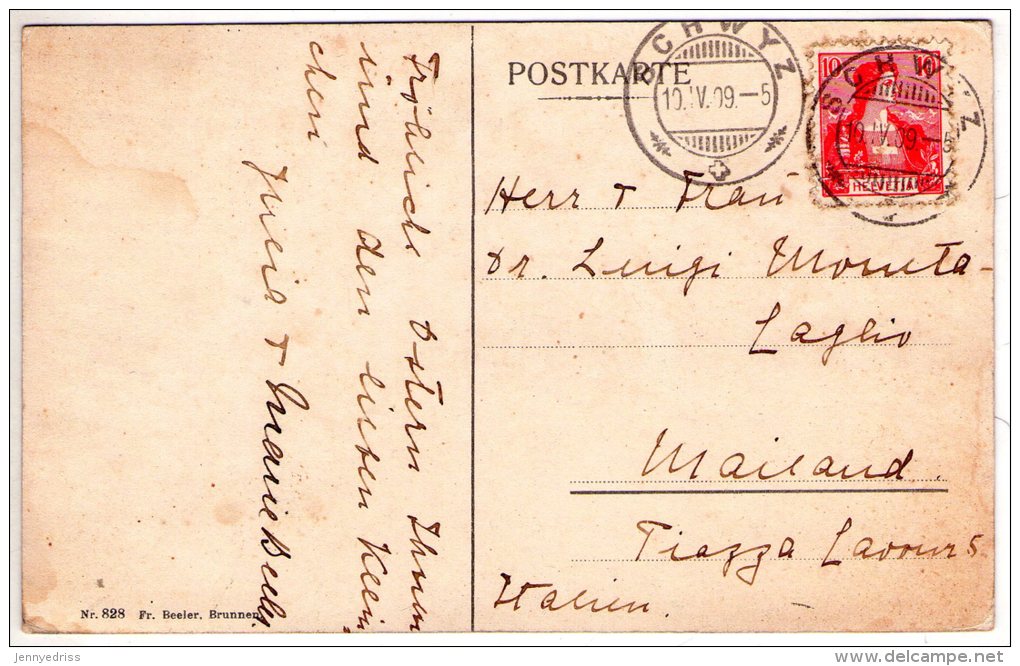 Fröhliche Ostern Ihnen
und den lieben Klein-
chen
& Marie
Nr. 828 Fr. Beeler, Brunnen
POSTKARTE
SCHWYZ
10.IV.09.-5
10 10
HELVETIA
SCHWYZ
10.IV.09-5
Herr & Frau
Dr. Luigi Moneta-
Caglio
Mailand.
Piazza Cavour 5.
Italien.
jennyedriss
www.delcampe.net